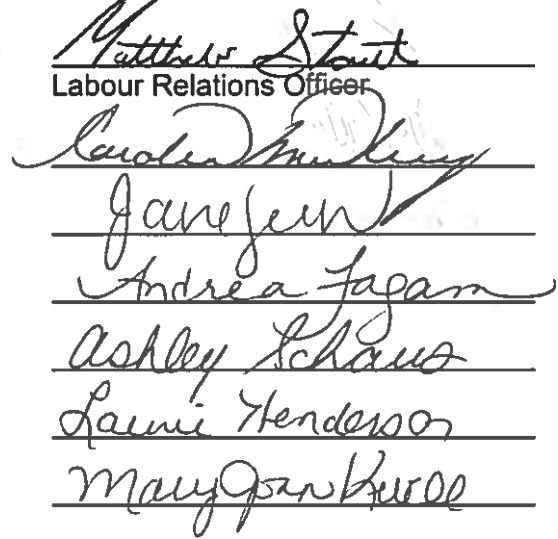 Matthew Stout
Labour Relations Officer
Carolen
Jane
Andrea Fagan
Ashley Schaus
Laurie Henderson
Mary Joan